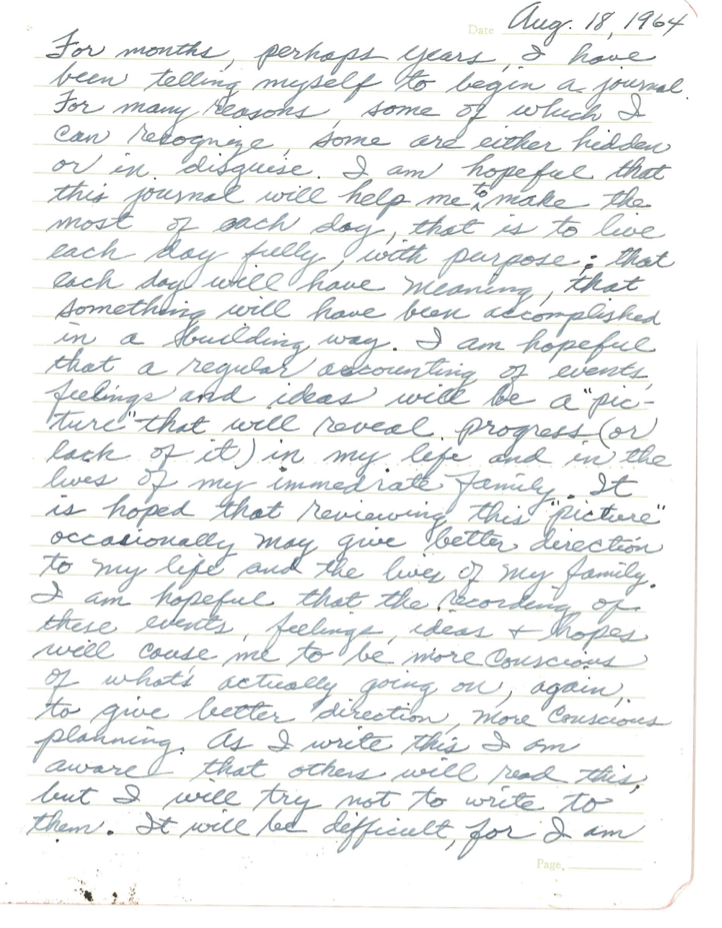 Date Aug. 18, 1964
For months, perhaps years, I have
been telling myself to begin a journal.
For many reasons, some of which I
can recognize, some are either hidden
or in disguise. I am hopeful that
this journal will help me to make the
most of each day, that is to live
each day fully, with purpose; that
each day will have meaning, that
something will have been accomplished
in a building way. I am hopeful
that a regular accounting of events,
feelings and ideas will be a "pic-
ture" that will reveal progress (or
lack of it) in my life and in the
lives of my immediate family. It
is hoped that reviewing this "picture"
occasionally may give better direction
to my life and the lives of my family.
I am hopeful that the recording of
these events, feelings, ideas + hopes
will cause me to be more conscious
of what's actually going on, again,
to give better direction, more conscious
planning. As I write this I am
aware that others will read this,
but I will try not to write to
them. It will be difficult, for I am
Page,